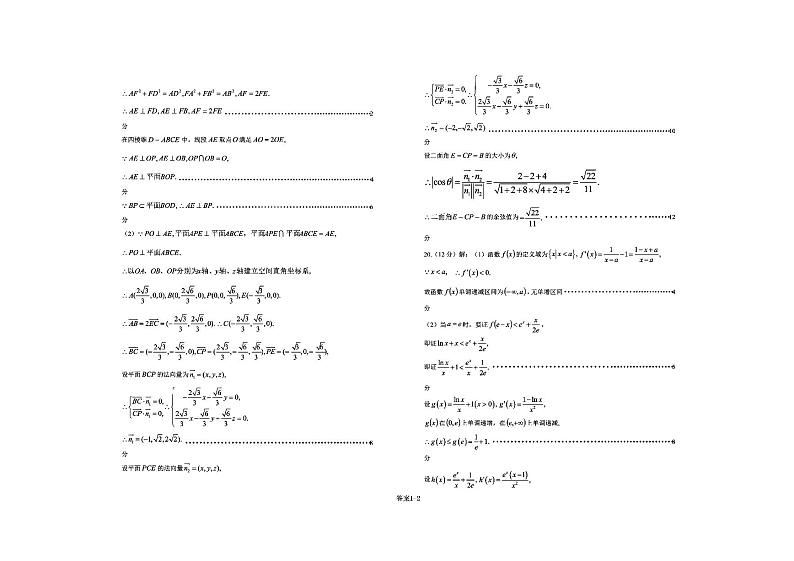 ∴AF²+FD²=AD²,FA²+FB²=AB²,AF=2FE.
∴AE⊥FD,AE⊥FB,AF=2FE ……………………………………2
分
在四棱锥D−ABCE中，线段AE取点O满足AO=2OE，
∵AE⊥OP,AE⊥OB,OP⋂OB=O,
∴AE⊥平面BOP.……………………………………4
分
∵BP⊂平面BOD,∴AE⊥BP.……………………………………6
分
（2）∵PO⊥AE,平面APE⊥平面ABCE，平面APE⋂平面ABCE=AE,
∴PO⊥平面ABCE.
∴以OA、OB、OP分别为x轴、y轴、z轴建立空间直角坐标系。
∴A(2√3/3,0,0),B(0,2√6/3,0),P(0,0,√6/3),E(−√3/3,0,0).
∴AB=2EC=(−2√3/3,2√6/3,0).∴C(−2√3/3,√6/3,0).
∴BC=(−2√3/3,−√6/3,0),CP=(2√3/3,−√6/3,√6/3),PE=(−√3/3,0,−√6/3),
设平面BCP的法向量为n₁=(x,y,z),
∴{BC·n₁=0, CP·n₁=0, ∴{−2√3/3x−√6/3y=0, 2√3/3x−√6/3y−√6/3z=0.
∴n₁=(−1,√2,2√2).……………………………………8
分
设平面PCE的法向量n₂=(x,y,z),
∴{PE·n₂=0, CP·n₂=0. ∴{−√3/3x−√6/3z=0, 2√3/3x−√6/3y+√6/3z=0.
∴n₂=(−2,−√2,√2)……………………………………10
分
设二面角E−CP−B的大小为θ,
∴|cosθ|=n₁·n₂/|n₁||n₂|=2−2+4/√1+2+8×√4+2+2=√22/11.
∴二面角E−CP−B的余弦值为=√22/11.……………………………………12
分
20.（12分）解：（1）函数f(x)的定义域为{x|x<a}, f′(x)=1/x−a−1=1−x+a/x−a,
∵x<a, ∴f′(x)<0.
故函数f(x)单调递减区间为(−∞,a),无单增区间……………………………………4
分
（2）当a=e时，要证f(e−x)<eˣ+x/2e,
即证lnx+x<eˣ+x/2e,
即证lnx/x+1<eˣ/x+1/2e.……………………………………5
分
设g(x)=lnx/x+1(x>0), g′(x)=1−lnx/x²,
g(x)在(0,e)上单调递增，在(e,+∞)上单调递减。
∴g(x)≤g(e)=1/e+1.……………………………………8
分
设h(x)=eˣ/x+1/2e, h′(x)=eˣ(x−1)/x²,
答案1-2